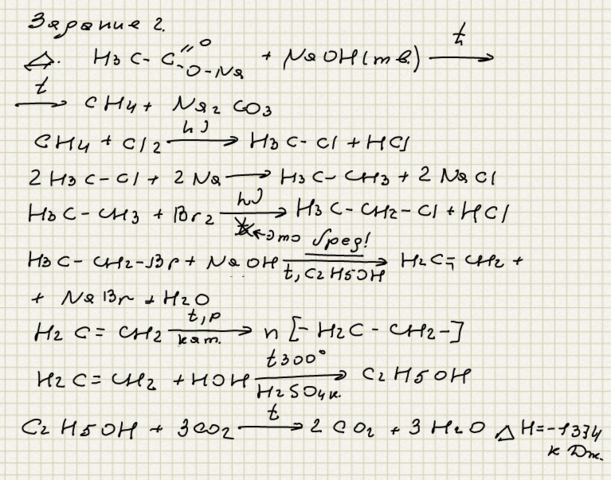 Задание 2.
Δ. H3C-C(=O)-O-Na + NaOH(тв.) —t→
—t→ CH4 + Na2CO3
CH4 + Cl2 —hν→ H3C-Cl + HCl
2H3C-Cl + 2Na → H3C-CH3 + 2NaCl
H3C-CH3 + Br2 —hν→ H3C-CH2-Cl + HCl
←это бред!
H3C-CH2-Br + NaOH —t, C2H5OH→ H2C=CH2 +
+ NaBr + H2O
H2C=CH2 —t,p кат.→ n[-H2C-CH2-]
H2C=CH2 + HOH —t300° H2SO4к.→ C2H5OH
C2H5OH + 3CO2 —t→ 2CO2 + 3H2O ΔH=-1374
кДж.